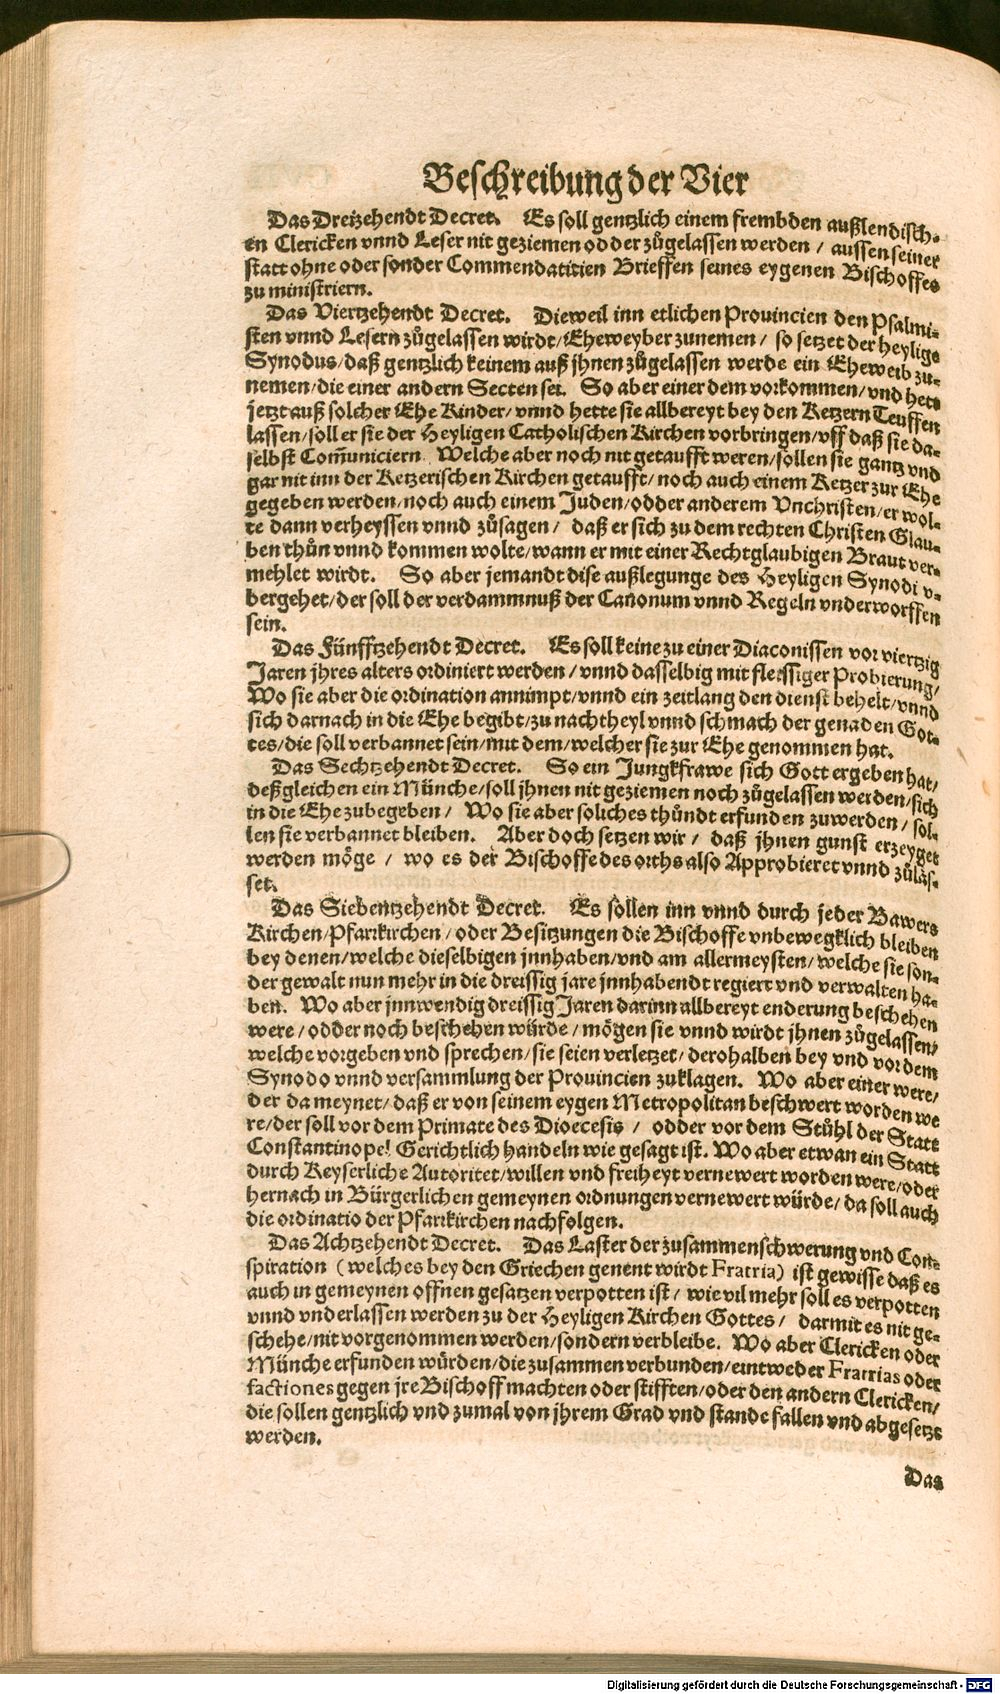 Beschreibung der Vier
Das Dreizehendt Decret. Es soll gentzlich einem frembden außlendisch-
en Clericken vnnd Leser nit geziemen odder zůgelassen werden / aussen seiner
statt ohne oder sonder Commendatitien Brieffen seines eygenen Bischoffes
zu ministriern.
Das Viertzehendt Decret. Dieweil inn etlichen Prouincien den Psalmi-
sten vnnd Lesern zůgelassen wirdt/ Eheweyber zunemen / so setzet der heylige
Synodus/ daß gentzlich keinem auß jhnen zůgelassen werde ein Eheweib zu-
nemen/ die einer andern Secten sei. So aber einer dem vorkommen/ vnd hett
jetzt auß solcher Ehe Kinder/ vnnd hette sie allbereyt bey den Ketzern Teuffen
lassen/ soll er sie der Heyligen Catholischen Kirchen vorbringen/ vff daß sie da-
selbst Com̃uniciern. Welche aber noch nit getaufft weren/ sollen sie gantz vnd
gar nit inn der Ketzerischen Kirchen getaufft/ noch auch einem Ketzer zur Ehe
gegeben werden/ noch auch einem Juden/ odder anderem Vnchristen/ er wol-
te dann verheyssen vnnd zůsagen / daß er sich zu dem rechten Christen Glau-
ben thůn vnnd kommen wolte/ wann er mit einer Rechtglaubigen Braut ver-
mehlet wirdt. So aber jemandt dise außlegunge des Heyligen Synodi v-
bergehet/ der soll der verdammnuß der Canonum vnnd Regeln vnderworffen
sein.
Das Fünfftzehendt Decret. Es soll keine zu einer Diaconissen vor viertzig
Jaren jhres alters ordiniert werden / vnnd dasselbig mit fleissiger Probierung/
Wo sie aber die ordination annimpt/ vnnd ein zeitlang den dienst behelt/ vnnd
sich darnach in die Ehe begibt/ zu nachtheyl vnnd schmach der genaden Got-
tes/ die soll verbannet sein/ mit dem/ welcher sie zur Ehe genommen hat.
Das Sechtzehendt Decret. So ein Jungkfrawe sich Gott ergeben hat/
deßgleichen ein Münche/ soll jhnen nit geziemen noch zůgelassen werden/ sich
in die Ehe zubegeben / Wo sie aber soliches thündt erfunden zuwerden / sol-
len sie verbannet bleiben. Aber doch setzen wir / daß jhnen gunst erzeyget
werden möge / wo es der Bischoffe des orths also Approbieret vnnd zůläs-
set.
Das Siebentzehendt Decret. Es sollen inn vnnd durch jeder Bawers
Kirchen/ Pfarrkirchen / oder Besitzungen die Bischoffe vnbewegklich bleiben
bey denen/ welche dieselbigen jnnhaben/ vnd am allermeysten/ welche sie son-
der gewalt nun mehr in die dreissig jare jnnhabendt regiert vnd verwalten ha-
ben. Wo aber jnnwendig dreissig Jaren darinn allbereyt enderung beschehen
were / odder noch beschehen würde / mögen sie vnnd wirdt jhnen zůgelassen/
welche vorgeben vnd sprechen/ sie seien verletzet / derohalben bey vnd vor dem
Synodo vnnd versammlung der Prouincien zuklagen. Wo aber einer were/
der da meynet/ daß er von seinem eygen Metropolitan beschwert worden we
re/ der soll vor dem Primate des Dioecesis / odder vor dem Stůhl der Statt
Constantinopel Gerichtlich handeln wie gesagt ist. Wo aber etwan ein Statt
durch Keyserliche Autoritet/ willen vnd freiheyt vernewert worden were/ oder
hernach in Bürgerlichen gemeynen ordnungen vernewert würde/ da soll auch
die ordinatio der Pfarrkirchen nachfolgen.
Das Achtzehendt Decret. Das Laster der zusammenschwerung vnd Con-
spiration (welches bey den Griechen genent wirdt Fratria) ist gewisse daß es
auch in gemeynen offnen gesatzen verpotten ist / wie vil mehr soll es verpotten
vnnd vnderlassen werden zu der Heyligen Kirchen Gottes / darmit es nit ge-
schehe/ nit vorgenommen werden/ sondern verbleibe. Wo aber Clericken oder
Münche erfunden würden/ die zusammen verbunden/ eintweder Fratrias oder
factiones gegen jre Bischoff machten oder stifften/ oder den andern Clericken/
die sollen gentzlich vnd zumal von jhrem Grad vnd stande fallen vnd abgesetzt
werden.
Das
Digitalisierung gefördert durch die Deutsche Forschungsgemeinschaft - DFG